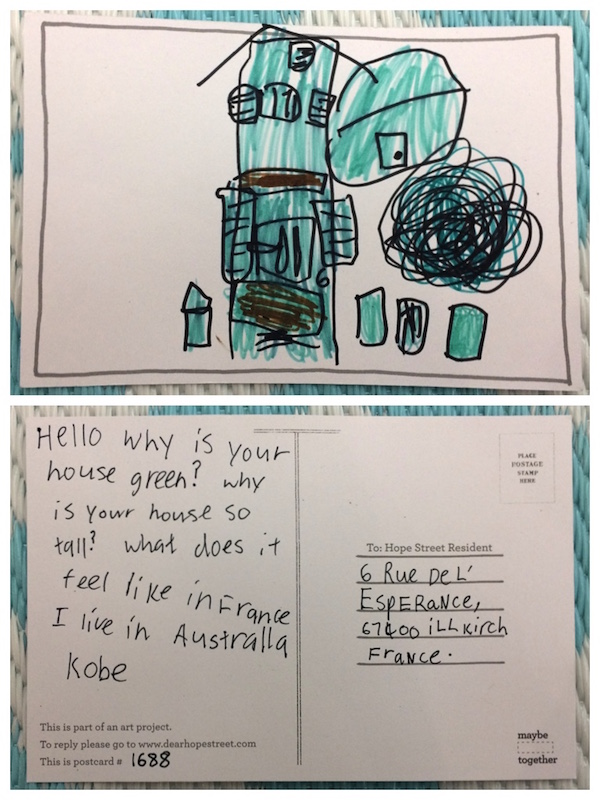 6
Hello why is your
house green? why
is your house so
tall? what does it
feel like in France
I live in Australia
Kobe
This is part of an art project.
To reply please go to www.dearhopestreet.com
This is postcard # 1688
PLACE
POSTAGE
STAMP
HERE
To: Hope Street Resident
6 Rue De L'
EspERaNce,
67400 iLLKirch
FraNce.
maybe
together